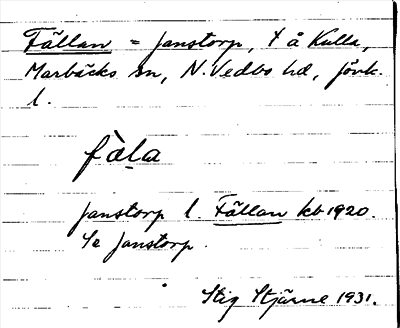 Fällan = Janstorp, t å Kulla,
Marbäcks sn, N. Vedbo hd, Jönk.
l.
fàla
Janstorp l. Fällan kb 1920.
Se Janstorp.
Stig Stjärne 1931.